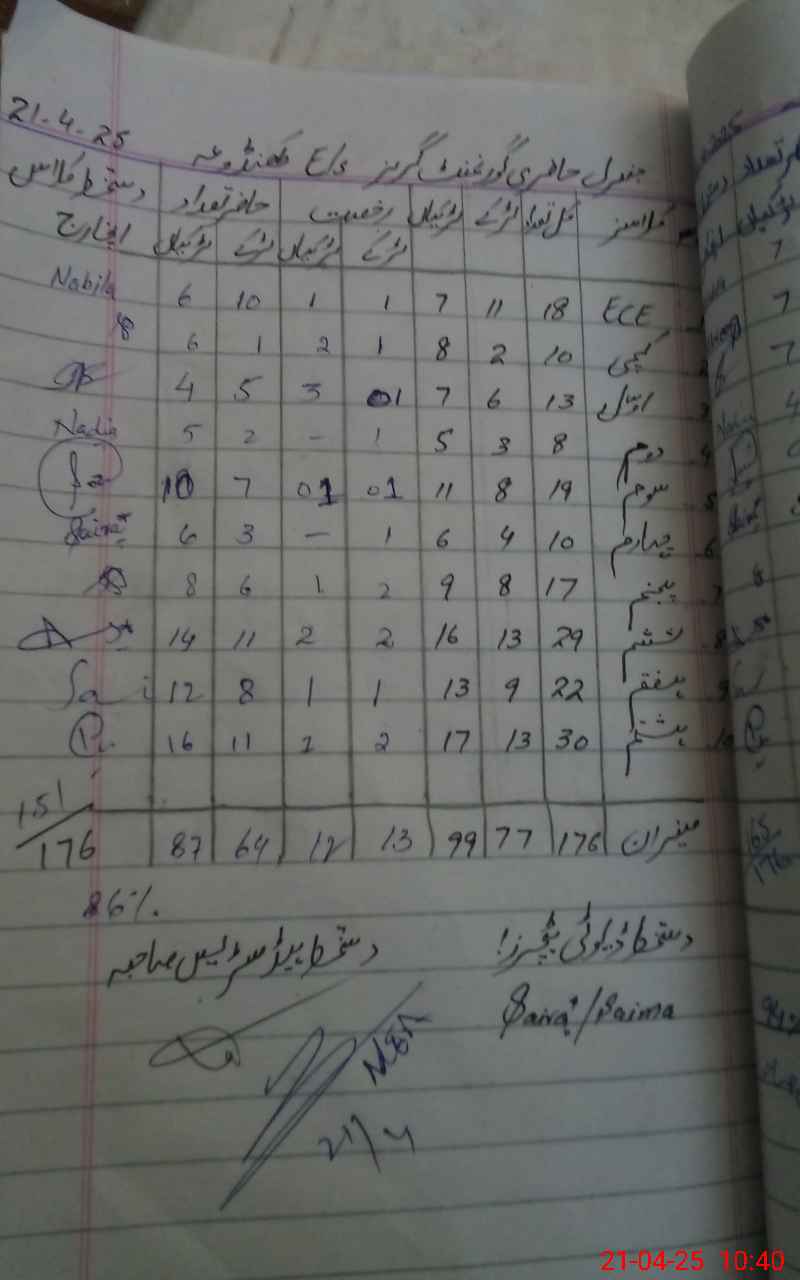 21-4-25
جنرل حاضری گورنمنٹ گرلز E/s کھنڈوعہ
کلاسز کل تعداد لڑکے لڑکیاں رخصت حاضر تعداد دستخط کلاس
لڑکے لڑکیاں لڑکے لڑکیاں انچارج
ECE 18 11 7 1 1 10 6 Nabila
2 کچی 10 2 8 1 2 1 6
3 اول 13 6 7 01 3 5 4
4 دوم 8 3 5 1 – 2 5 Nadia
5 سوم 19 8 11 01 01 7 10
6 چہارم 10 4 6 1 – 3 6 Saira
7 پنجم 17 8 9 2 1 6 8
8 ششم 29 13 16 2 2 11 14
9 ہفتم 22 9 13 1 1 8 12
10 ہشتم 30 13 17 2 1 11 16
میزان 176 77 99 13 12 64 87 151/176
86%
دستخط ڈیوٹی ٹیچرز! دستخط ہیڈمسٹریس صاحبہ
Saira/Saima
21/4
21-04-25 10:40